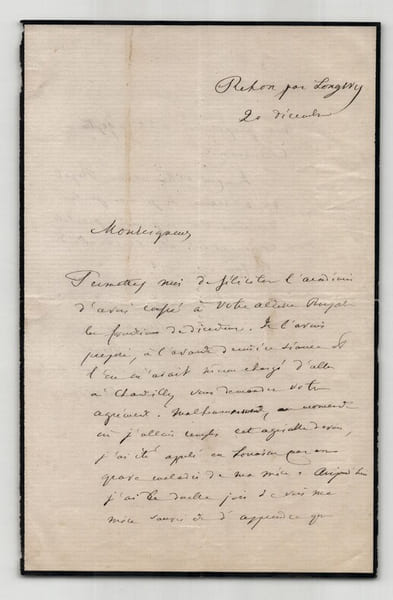 Rehon par Longwy
20 décembre
Monseigneur
Permettez moi de féliciter l'académie
d'avoir confié à Votre altesse Royale
les fonctions de directeur. Je l'avais
proposé, à l'avant dernière séance et
l'on m'avait même chargé d'aller
à Chantilly vous demander votre
agrément. Malheureusement, au moment
où j'allais remplir cet agréable devoir,
j'ai été appelé en Lorraine par une
grave maladie de ma mère. Aujourd'hui
j'ai la double joie de voir ma
mère sauvée et d'apprendre que